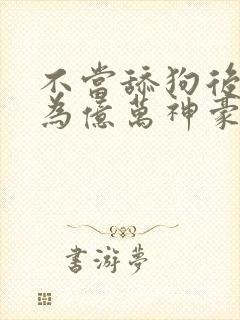 不當舔狗後
為億萬神豪
書游夢